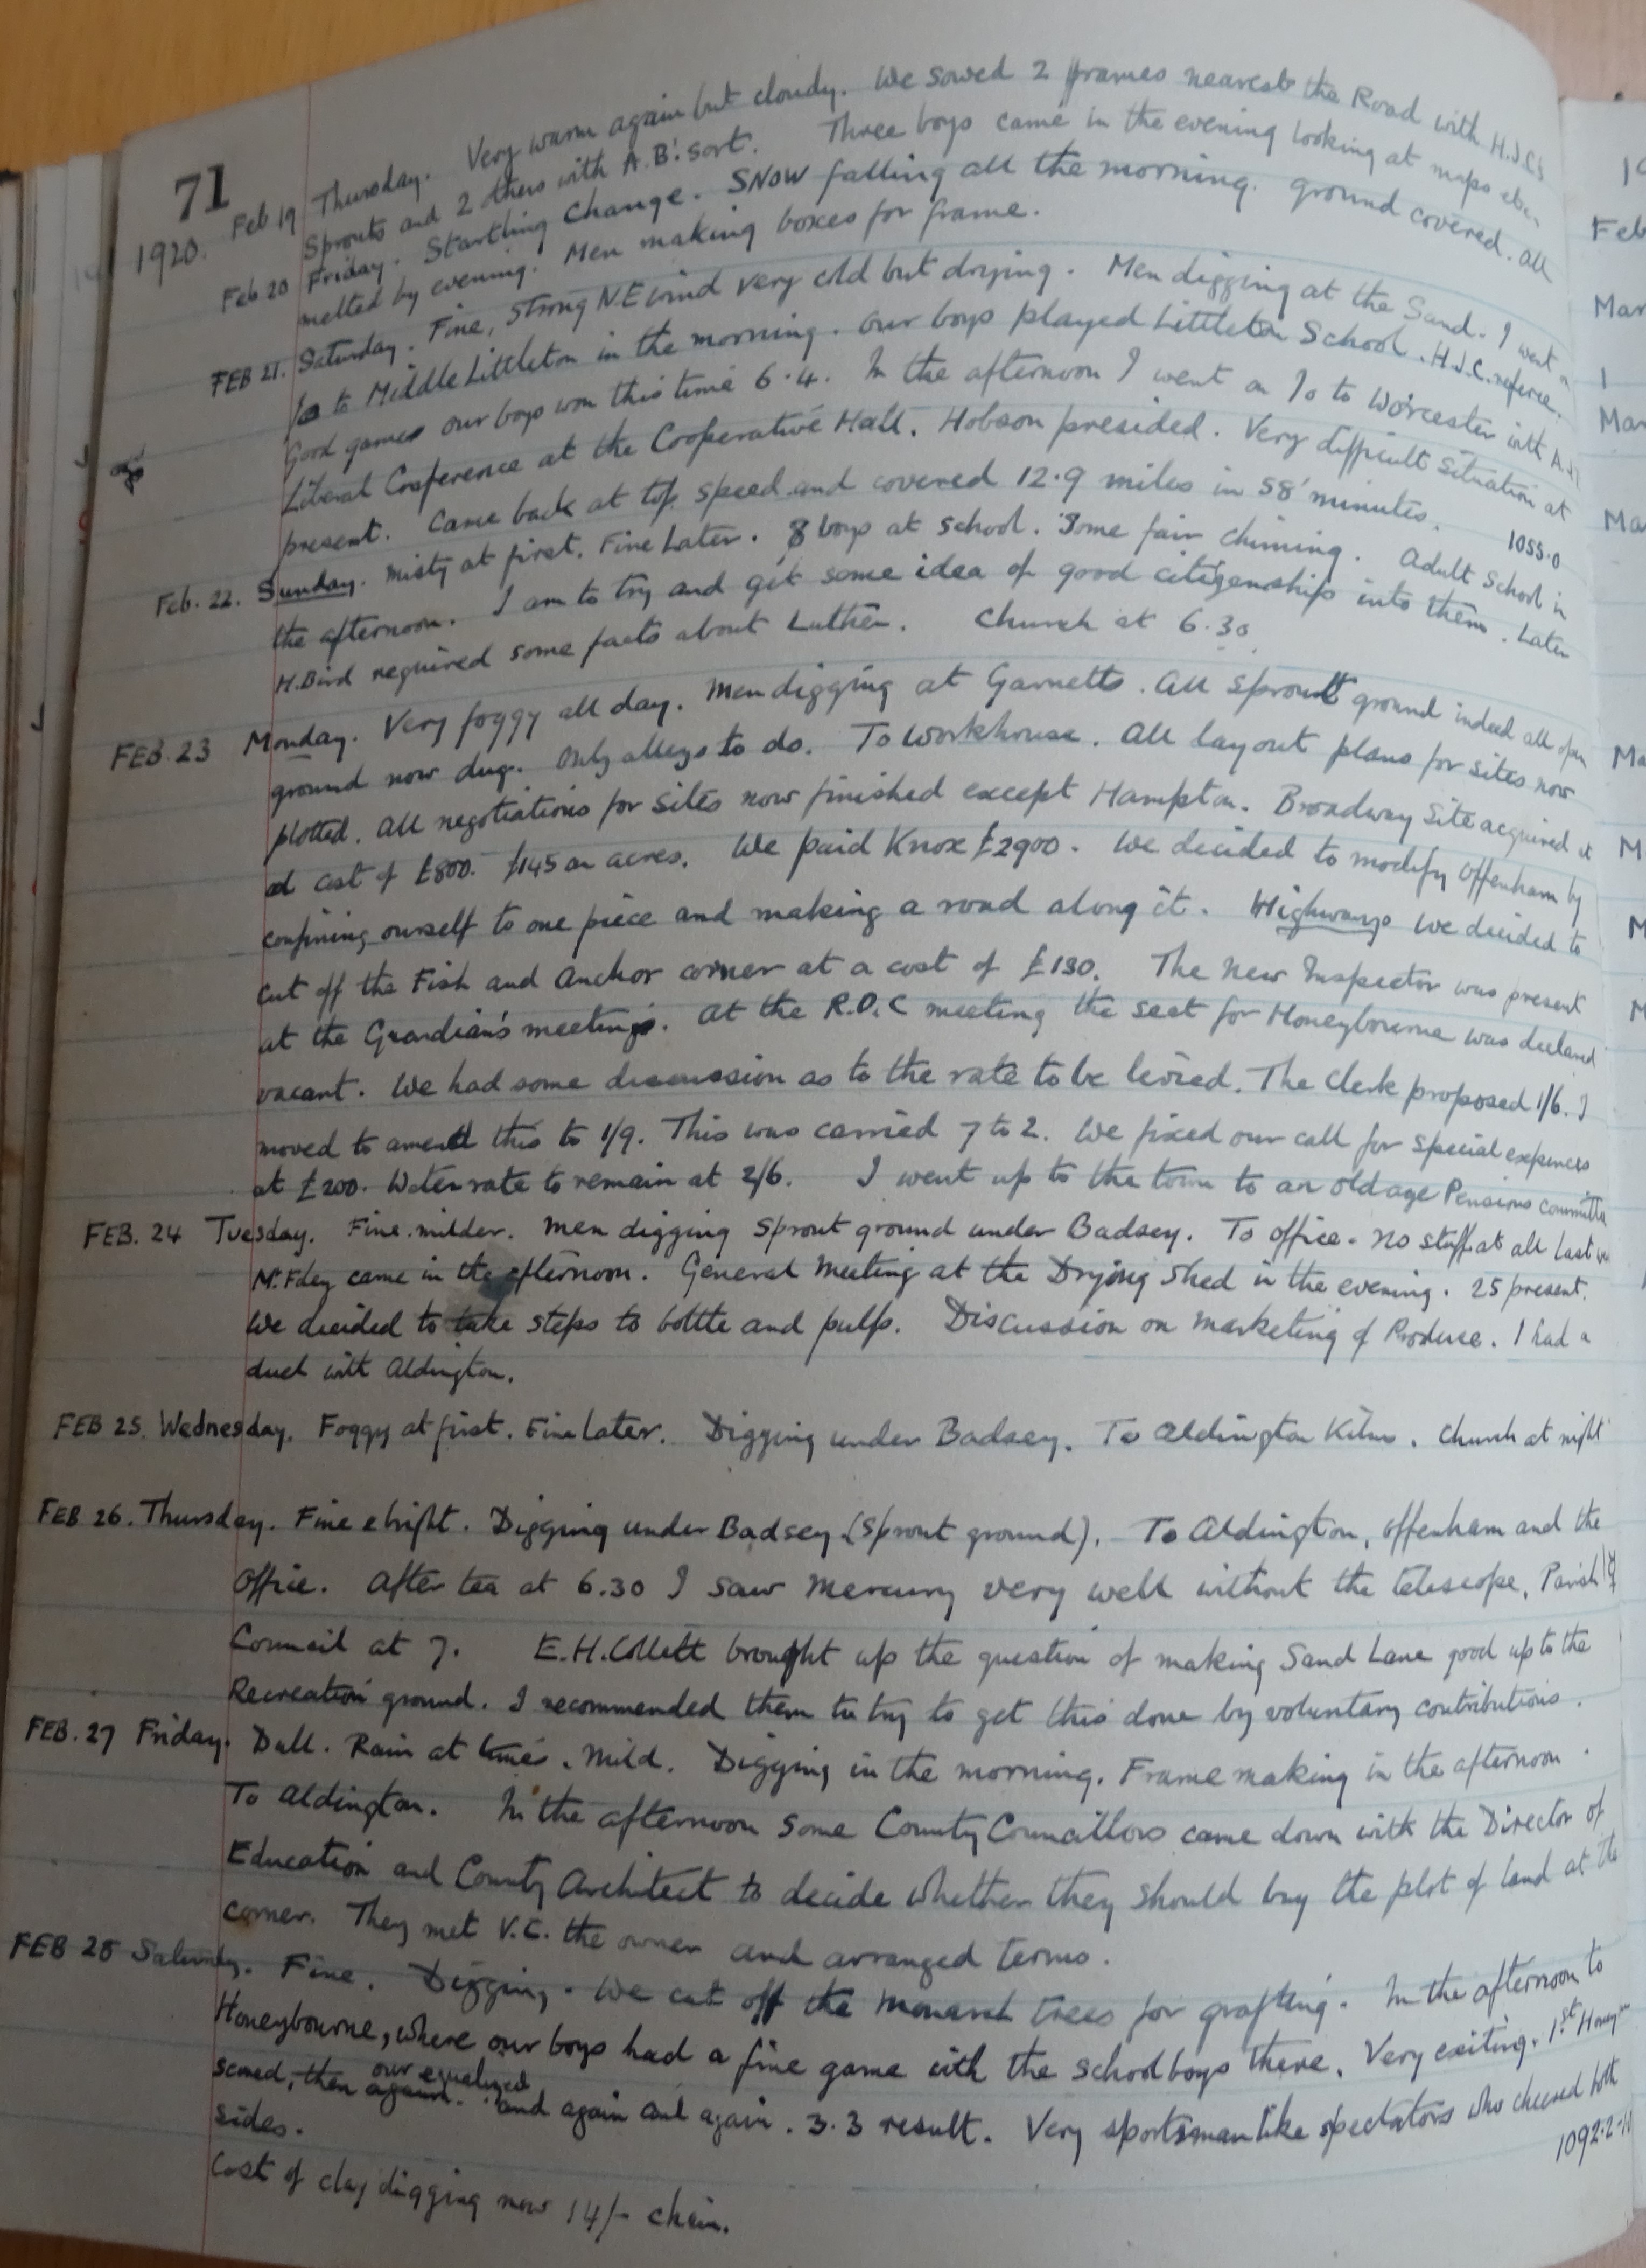 71
1920.
Feb 19 Thursday. Very warm again but cloudy. We sowed 2 frames nearest the Road with H.J.C's
Sprouts and 2 others with A.B's sort. Three boys came in the evening looking at maps etc.
Feb 20 Friday. Startling Change. SNOW falling all the morning. ground covered. all
melted by evening. Men making boxes for frame.
FEB 21. Saturday. Fine, Strong NE wind very cold but drying. Men digging at the Sand. I went
to Middle Littleton in the morning. Our boys played Littleton School. H.J.C. referee.
Good games our boys won this time 6.4. In the afternoon I went on to Worcester with
Liberal Conference at the Cooperative Hall. Hobson presided. Very difficult situation at
present. Came back at top speed and covered 12.9 miles in 58 minutes.
1055.0
Feb. 22. Sunday. Misty at first. Fine Later. 8 boys at school. Some fair chiming. Adult School in
the afternoon. I am to try and get some idea of good citizenship into them. Later
H. Bird required some facts about Luther. Church at 6.30
FEB. 23 Monday. Very foggy all day. Men digging at Garnetts. All sprout ground indeed all open
ground now dug. Only alleys to do. To Workhouse. All layout plans for sites now
plotted. All negotiations for sites now finished except Hampton. Broadway Site acquired at
cost of £800. £145 an acres. We paid Knox £2900. We decided to modify Offenham by
confining ourself to one piece and making a road along it. Highways We decided to
cut off the Fish and Anchor corner at a cost of £130. The New Inspector was present
at the Guardian's meeting. At the R.D.C meeting the seat for Honeybourne was declared
vacant. We had some discussion as to the rate to be levied. The Clerk proposed 1/6. I
moved to amend this to 1/9. This was carried 7 to 2. We fixed our call for special expenses
at £200. Water rate to remain at 2/6. I went up to the town to an old age Pensions committee
FEB. 24 Tuesday. Fine. milder. Men digging Sprout ground under Badsey. To office. No stuff at all last
came in the afternoon. General Meeting at the Drying Shed in the evening. 25 present.
We decided to take steps to bottle and pulp. Discussion on marketing of Produce. I had a
duel with Aldington.
FEB 25. Wednesday. Foggy at first. Fine Later. Digging under Badsey. To Aldington Kilns. Church at night
FEB 26. Thursday. Fine & bright. Digging under Badsey (Sprout ground). To Aldington, Offenham and the
office. After tea at 6.30 I saw Mercury very well without the telescope. Parish
Council at 7. E.H. Collett brought up the question of making Sand Lane good up to the
Recreation ground. I recommended them to try to get this done by voluntary contributions.
FEB. 27 Friday. Dull. Rain at times. Mild. Digging in the morning. Frame making in the afternoon.
To Aldington. In the afternoon some County Councillors came down with the Director of
Education and County Architect to decide whether they should buy the plot of land at the
corner. They met V.C. the owner and arranged terms.
FEB 28 Saturday. Fine. Digging. We cut off the Monarch trees for grafting. In the afternoon to
Honeybourne, where our boys had a fine game with the schoolboys there. Very exiting. 1st
scored, then our equalized and again and again. 3.3 result. Very sportsmanlike spectators who cheered both
sides.
Cost of clay digging now 14/- chain.